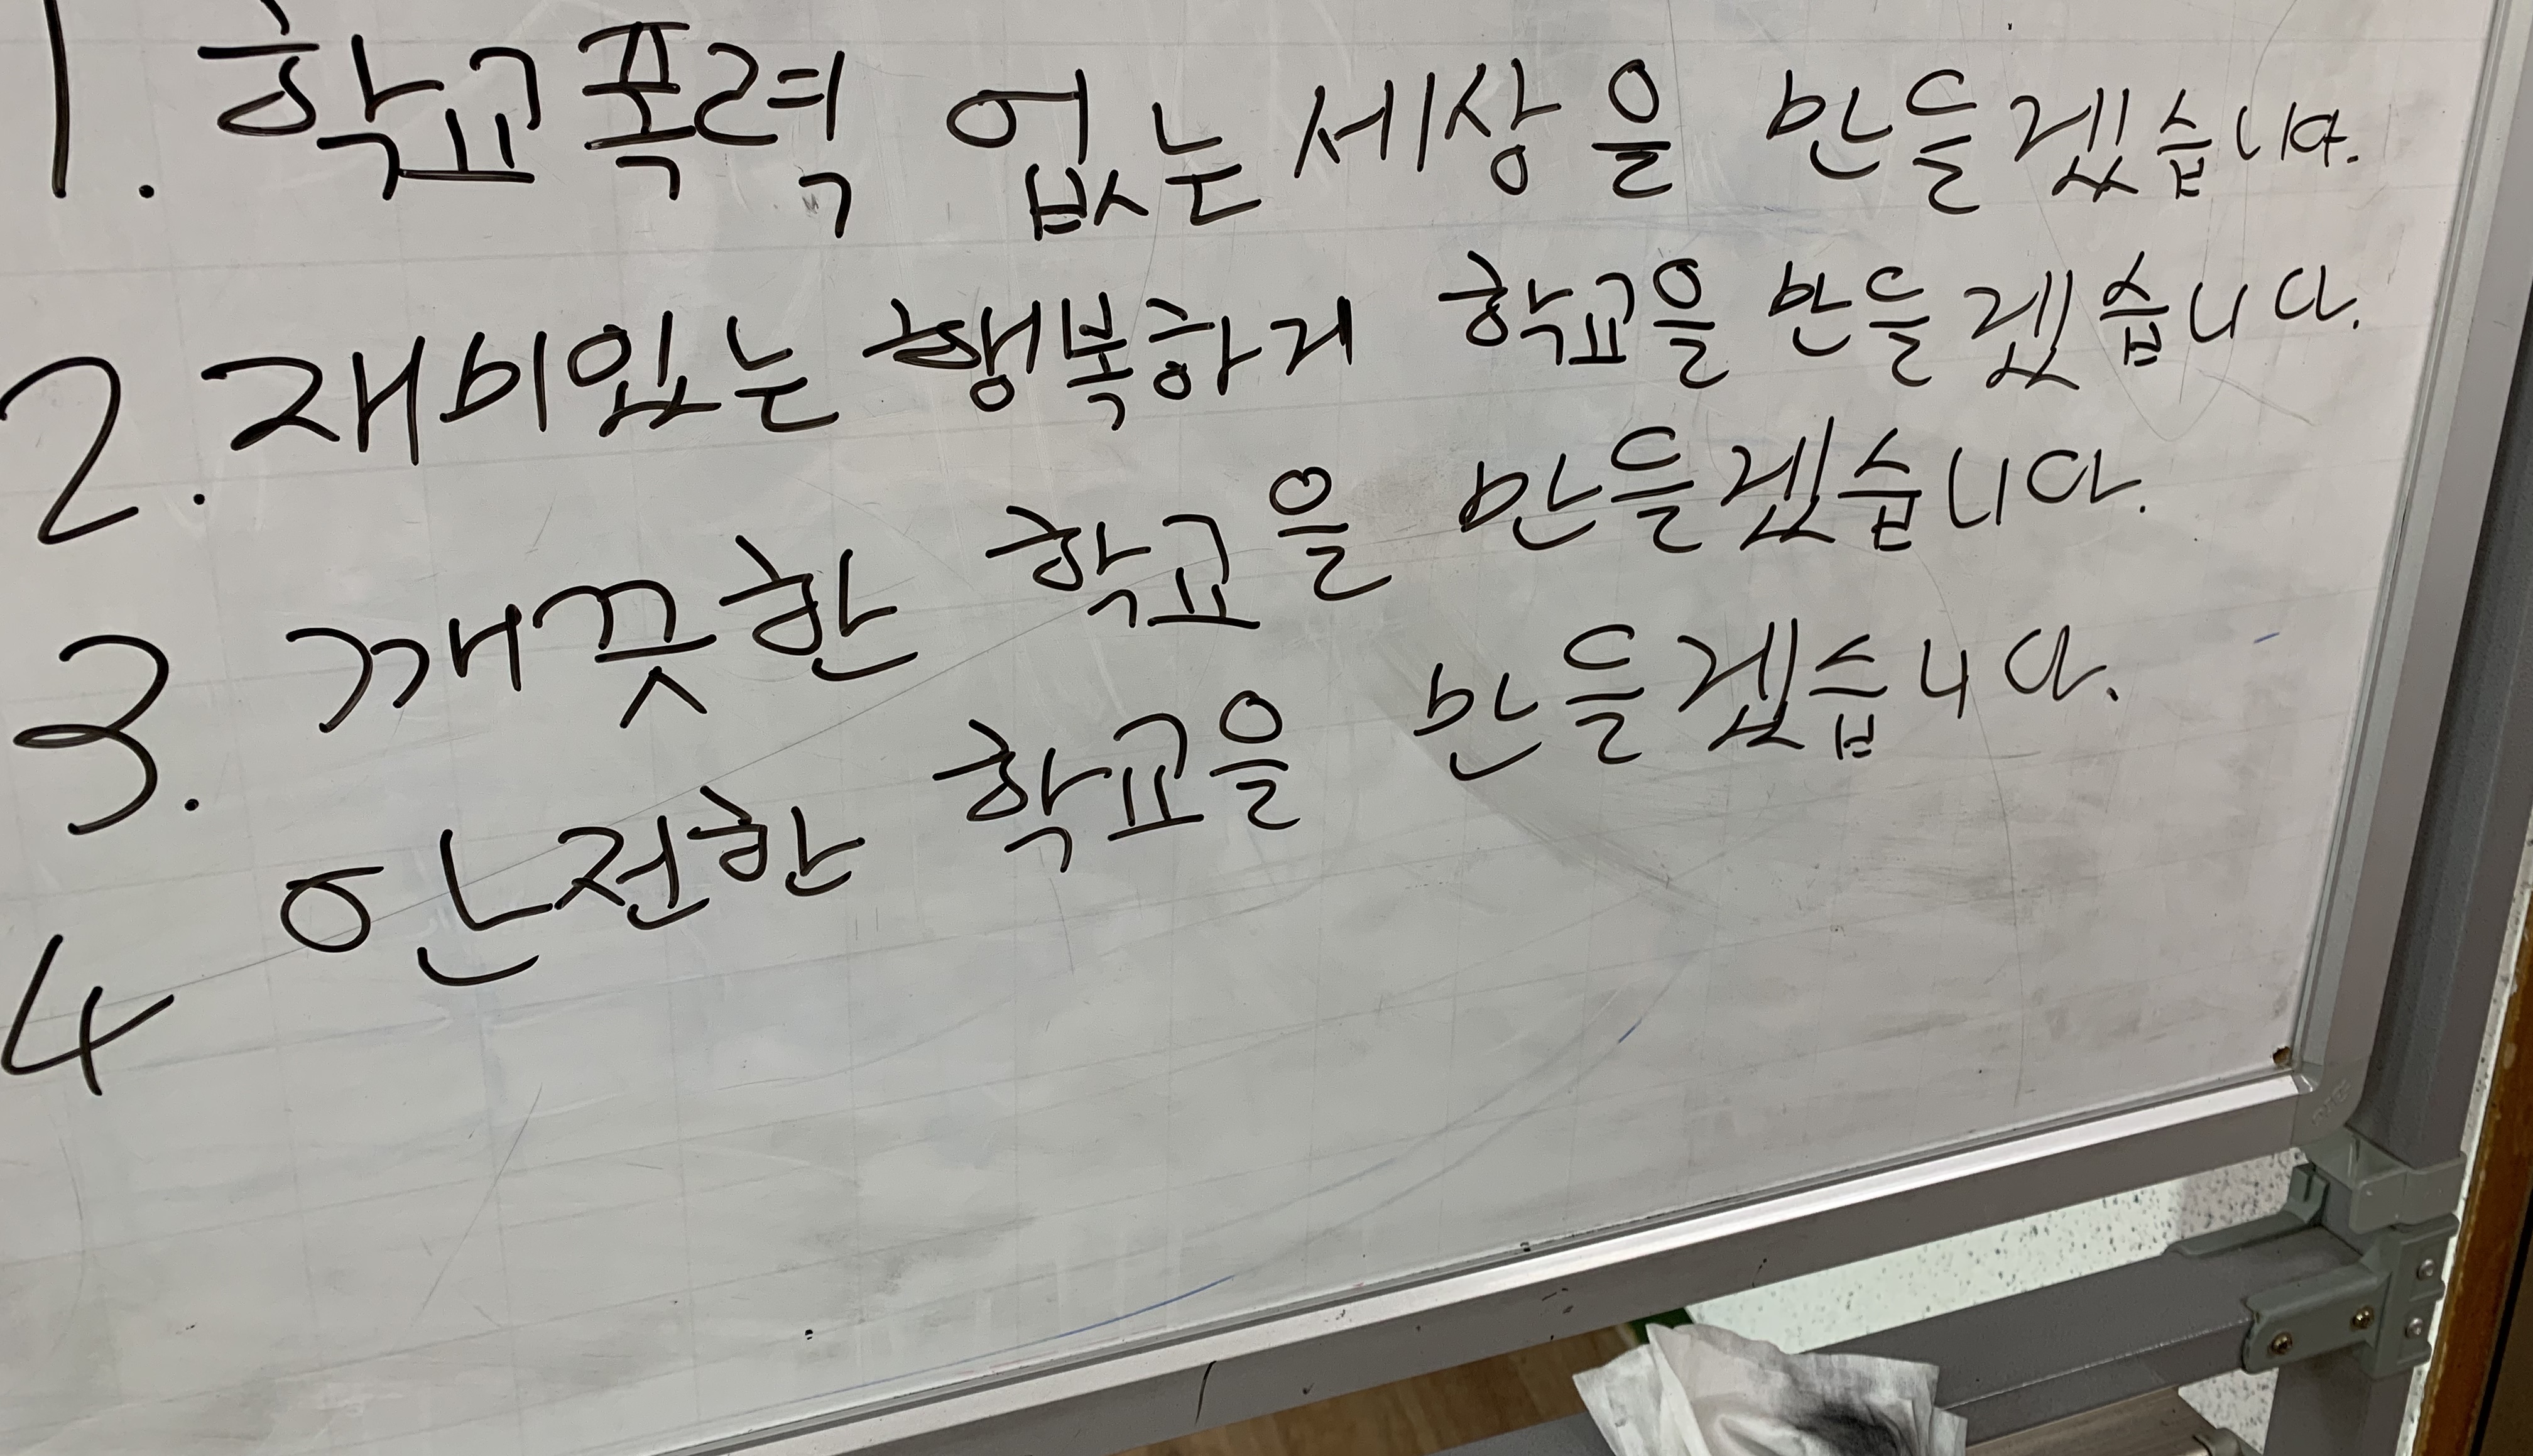 1. 학교폭력 없는 세상을 만들겠습니다.
2. 재미있는 행복하게 학교을 만들겠습니다.
3. 깨끗한 학교을 만들겠습니다.
4 안전한 학교을 만들겠습니다.